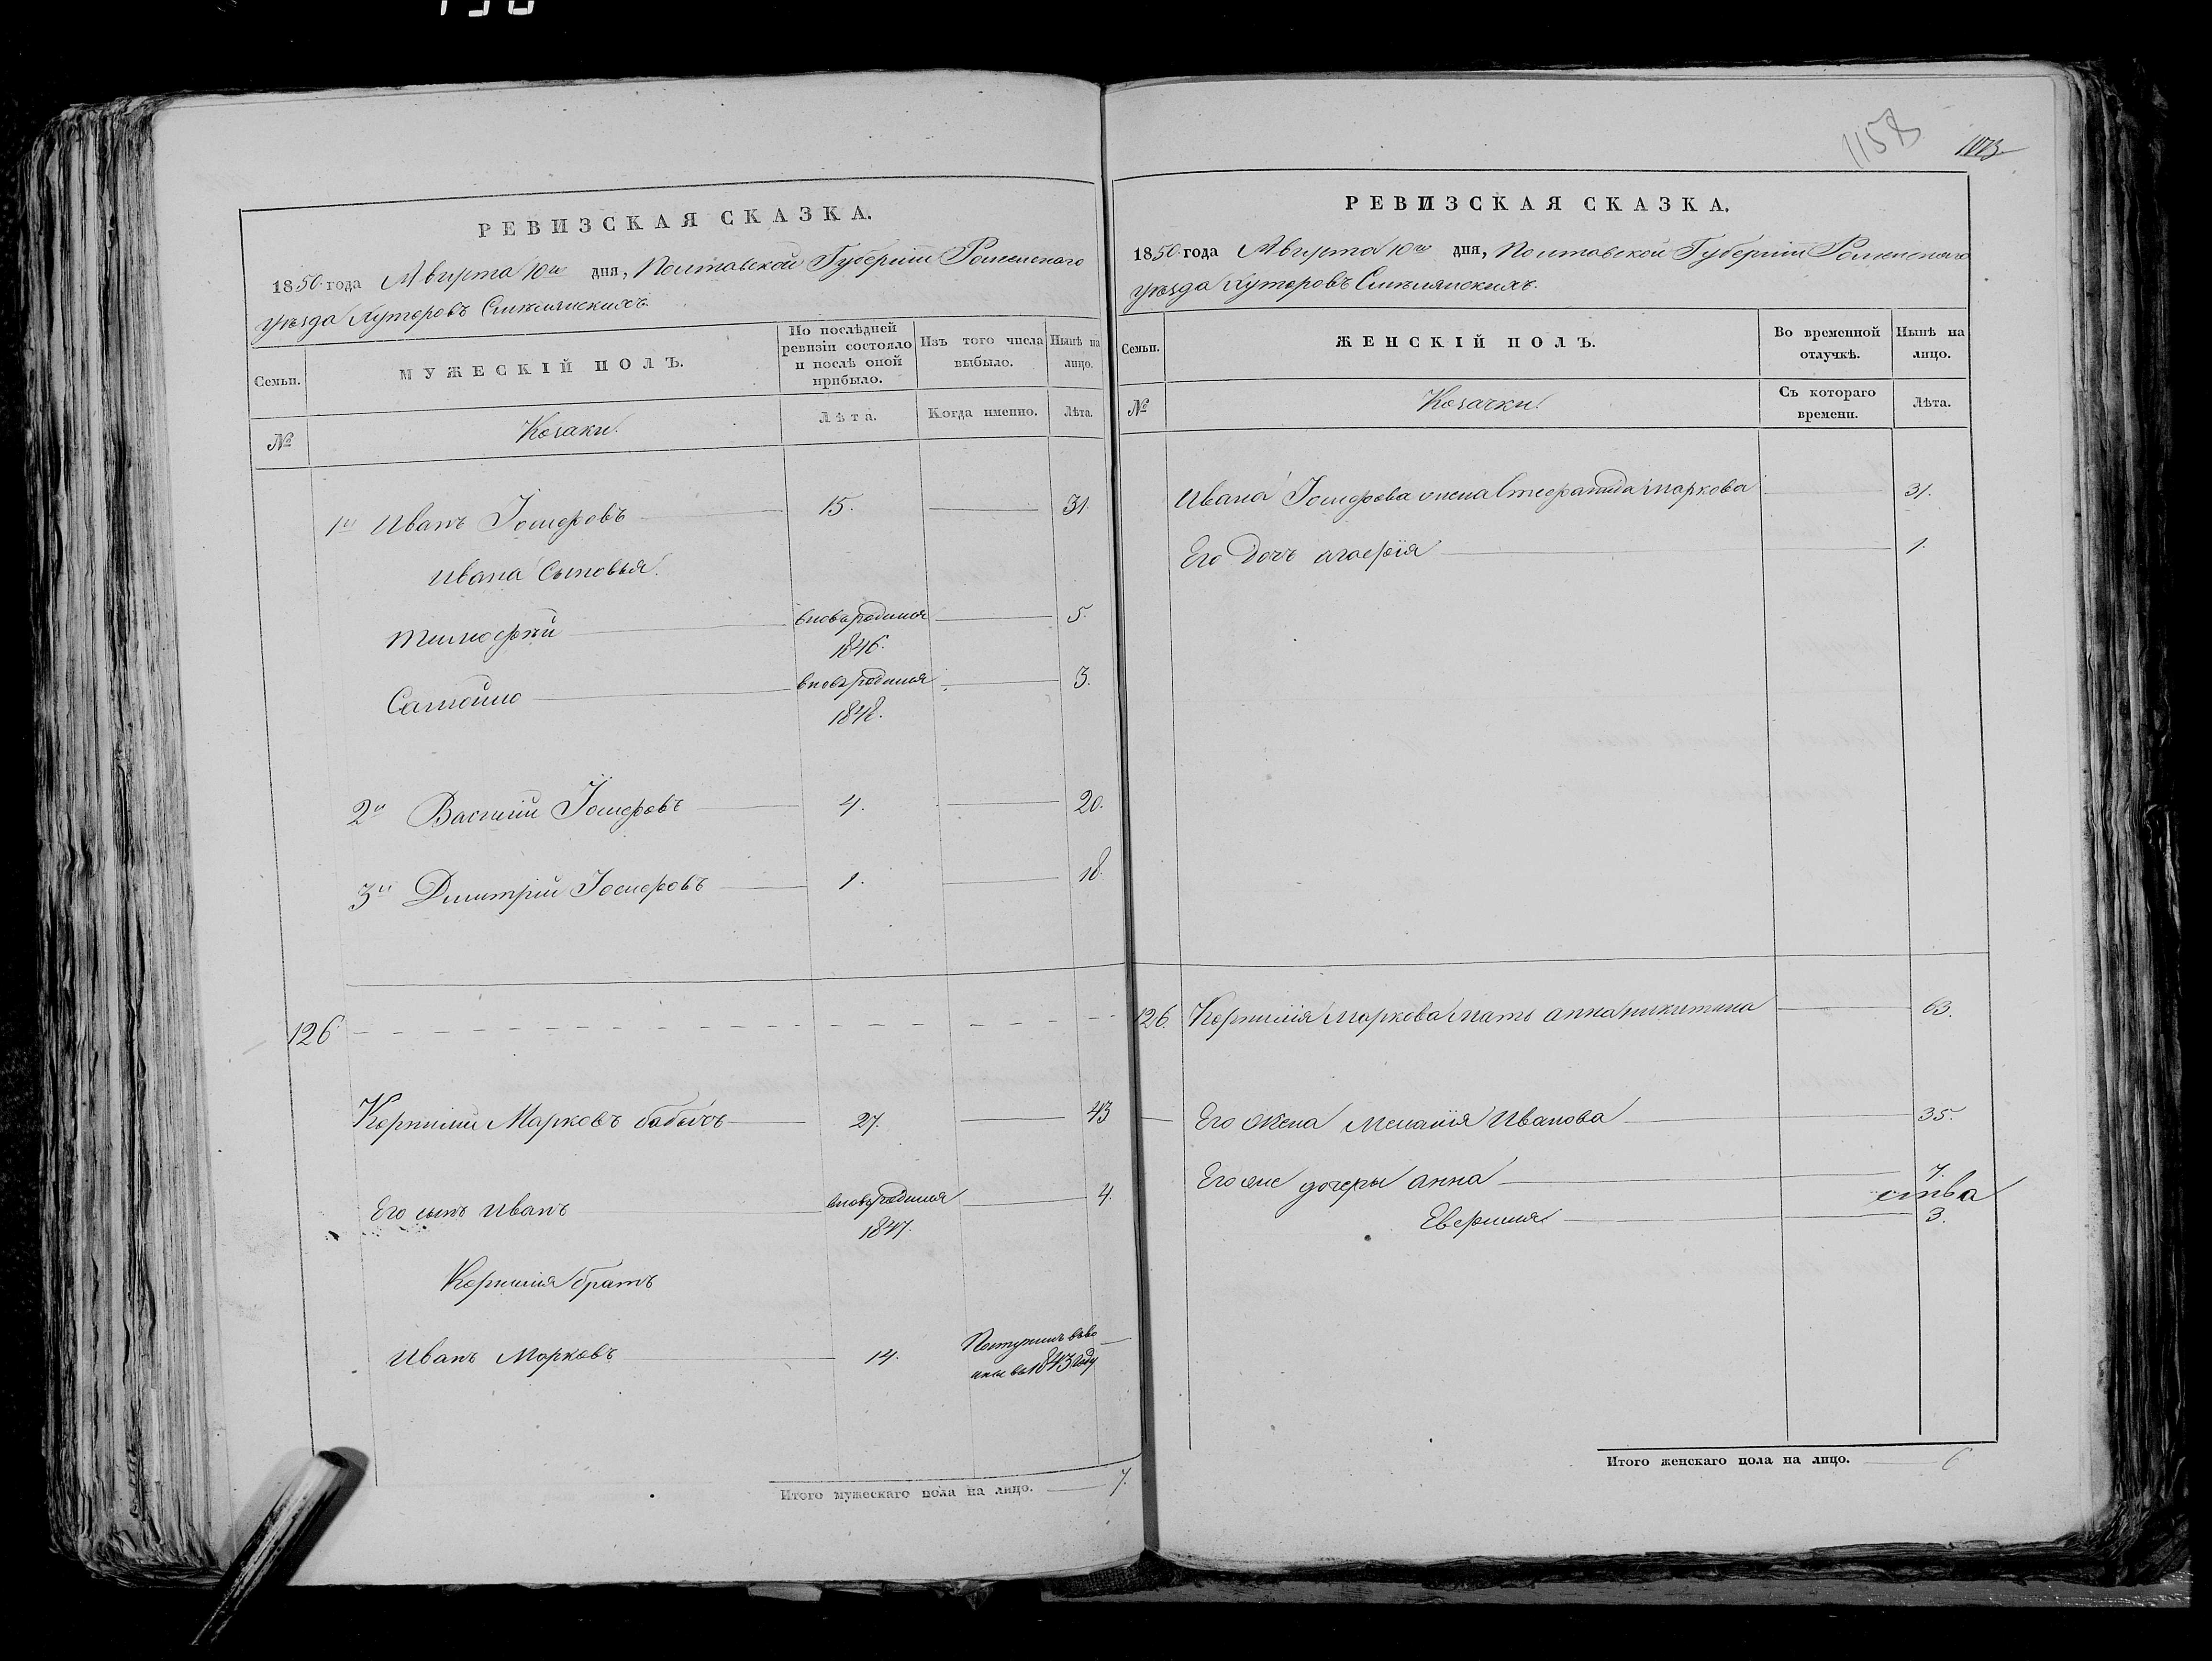 1158
1173
РЕВИЗСКАЯ СКАЗКА.
1850 года Августа 10го дня, Полтавской Губерніи Роменского
уѣзда Хуторовъ Смѣлянскихъ.
Семьи.
МУЖЕСКІЙ ПОЛЪ.
По послѣдней ревизіи состояло и послѣ оной прибыло.
Изъ того числа выбыло.
Нынѣ на лицо.
№
Козаки.
Лѣта.
Когда именно.
Лѣта.
1й Иванъ 15. 31.
Ивана Сыновья.
Тимофѣй вновьродился 1846. 5.
Самойло вновьродился 1848. 3.
2й Василій 4. 20.
3й Дмитрій 1. 18.
126.
Корнилій Марковъ бабичъ 27. 43
Его сынъ Иванъ вновьродился 1847. 4.
Корнилія братъ
Иванъ Марковъ 14. Поступилъ въ во
ины въ 1843 году
Итого мужескаго пола на лицо. 7.
РЕВИЗСКАЯ СКАЗКА.
1850 года Августа 10го дня, Полтавской Губерніи Роменского
уѣзда Хуторовъ Смѣлянскихъ.
Семьи.
ЖЕНСКІЙ ПОЛЪ.
Во временной отлучкѣ.
Нынѣ на лицо.
№
Козачки.
Съ котораго времени.
Лѣта.
Ивана жена маркова 31.
Его дочь агафія 1.
126. Корнилія Маркова мать анна никитина 63.
Его жена Меланія Иванова 35.
Его же дочеры анна 7.
ства
Евфимія 3.
Итого женскаго пола на лицо. 6